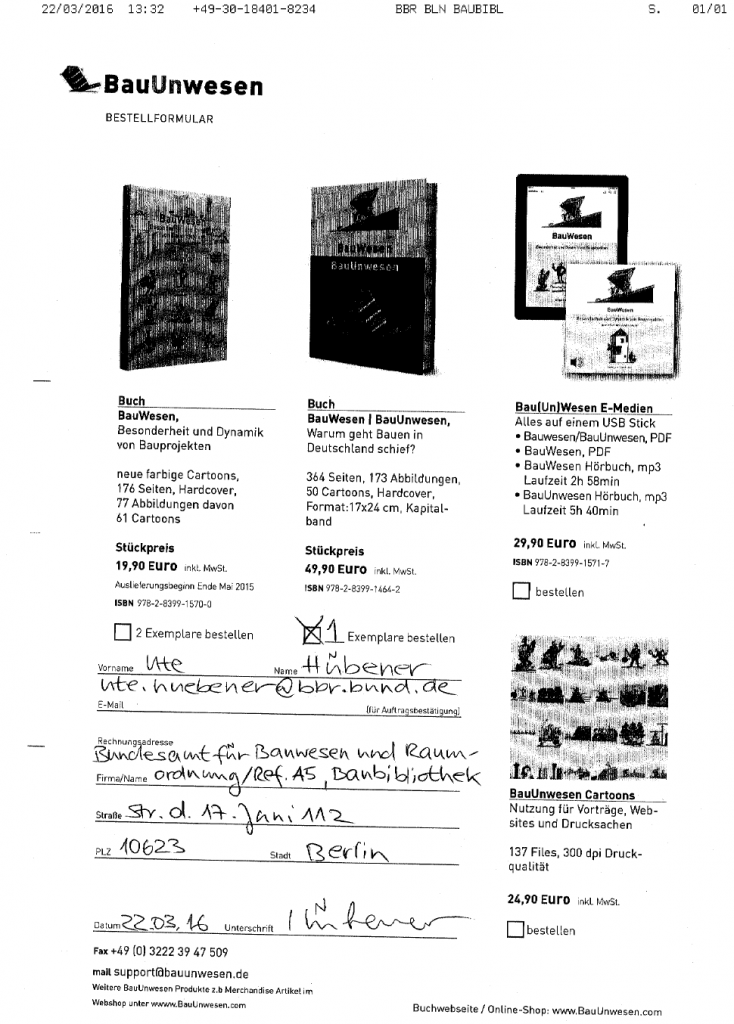 22/03/2016 13:32 +49-30-18401-8234 BBR BLN BAUBIBL S. 01/01
BauUnwesen
BESTELLFORMULAR
BauWesen
BauWesen
BauUnwesen
BauWesen
BauWesen
Buch
BauWesen,
Besonderheit und Dynamik
von Bauprojekten
neue farbige Cartoons,
176 Seiten, Hardcover,
77 Abbildungen davon
61 Cartoons
Stückpreis
19,90 Euro inkl. MwSt.
Auslieferungsbeginn Ende Mai 2015
ISBN 978-2-8399-1570-0
2 Exemplare bestellen
Buch
BauWesen | BauUnwesen,
Warum geht Bauen in
Deutschland schief?
364 Seiten, 173 Abbildungen,
50 Cartoons, Hardcover,
Format:17x24 cm, Kapital-
band
Stückpreis
49,90 Euro inkl. MwSt.
ISBN 978-2-8399-1464-2
1 Exemplare bestellen
Bau(Un)Wesen E-Medien
Alles auf einem USB Stick
• Bauwesen/BauUnwesen, PDF
• BauWesen, PDF
• BauWesen Hörbuch, mp3
Laufzeit 2h 58min
• BauUnwesen Hörbuch, mp3
Laufzeit 5h 40min
29,90 Euro inkl. MwSt.
ISBN 978-2-8399-1571-7
bestellen
Vorname Ute Name Hübener
ute.huebener@bbr.bund.de
E-Mail (für Auftragsbestätigung)
Rechnungsadresse
Bundesamt für Bauwesen und Raum-
Firma/Name ordnung/Ref. A5, Baubibliothek
Straße Str. d. 17. Juni 112
PLZ 10623 Stadt Berlin
Datum 22.03.16 Unterschrift Hübener
Fax +49 (0) 3222 39 47 509
mail support@bauunwesen.de
Weitere BauUnwesen Produkte z.b Merchandise Artikel im
Webshop unter wwww.BauUnwesen.com
BauUnwesen Cartoons
Nutzung für Vorträge, Web-
sites und Drucksachen
137 Files, 300 dpi Druck-
qualität
24,90 Euro inkl. MwSt.
bestellen
Buchwebseite / Online-Shop: www.BauUnwesen.com